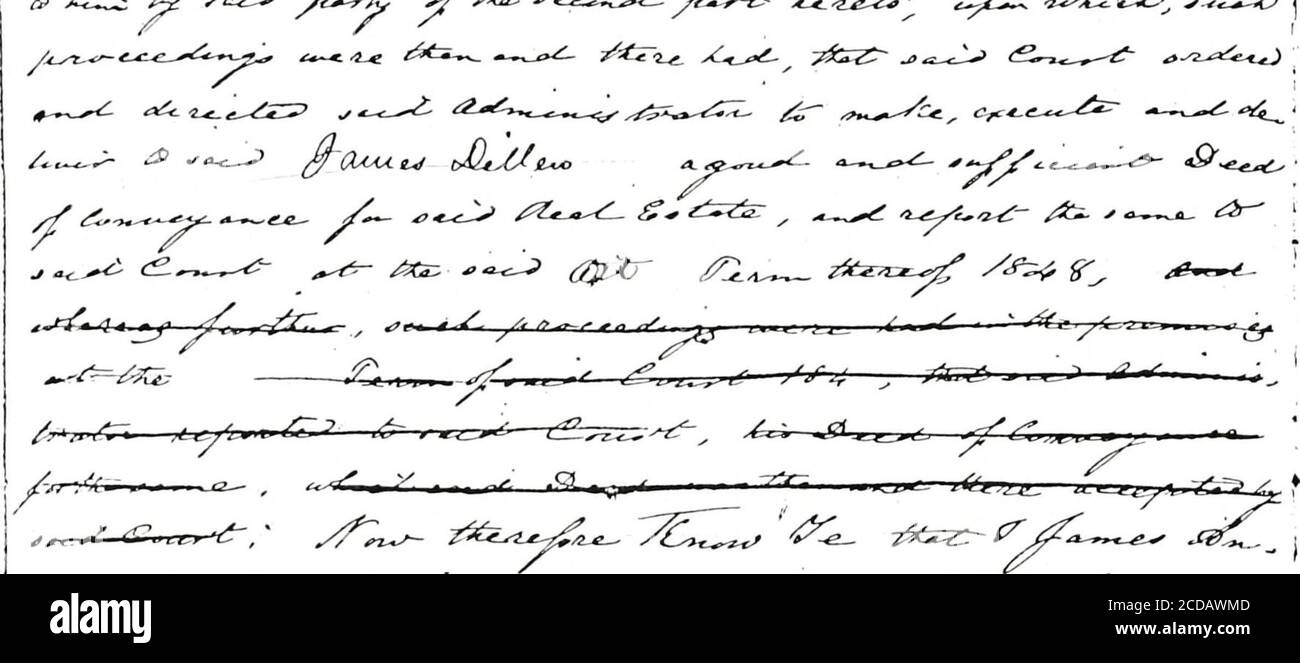 him by said party of the second part hereto, upon which, such
proceedings were then and there had, that said Court ordered
and directed said Administrator to make, execute and de-
liver to said James Dillew a good and sufficient Deed
of Conveyance for said Real Estate, and report the same to
said Court at the said Oct Term thereof 1848, and
whereas further, such proceedings were had in the premises
at the Term of said Court 184 , that said Adminis-
trator reported to said Court, his Deed of Conveyance
for the same, which said Deed was then and there accepted by
said Court; Now therefore Know Ye that I James An-
alamy
Image ID: 2CDAWMD
www.alamy.com